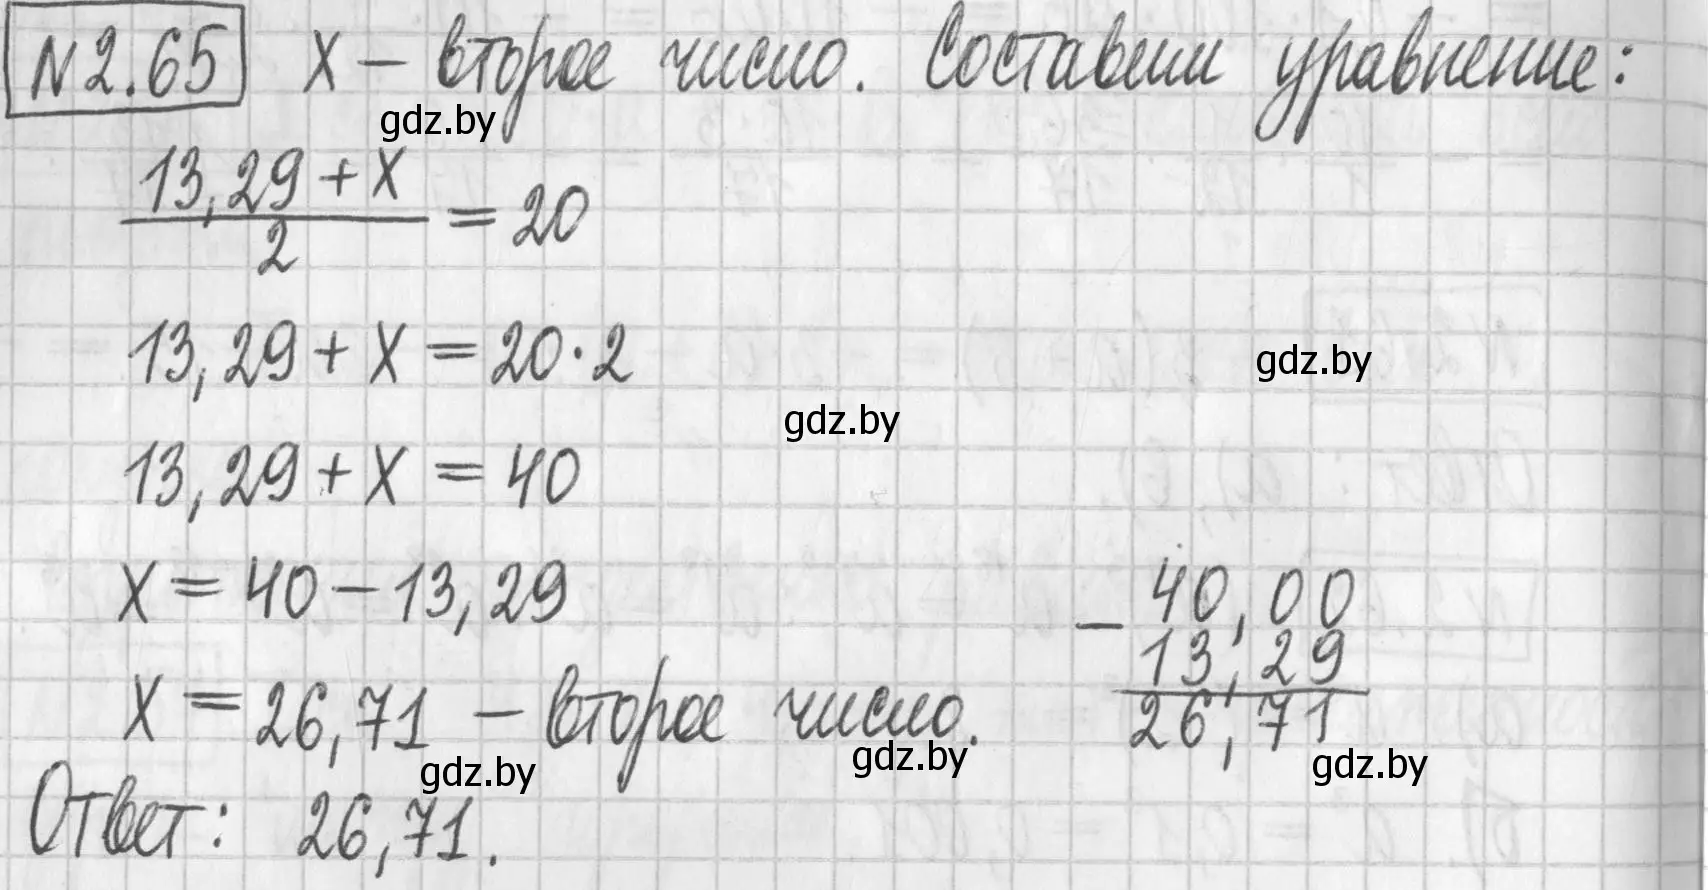 N 2.65 X – второе число. Составим уравнение:
gdz.by
13,29 + X
―――― = 20
2
13,29 + X = 20 · 2
gdz.by
gdz.by
13,29 + X = 40
X = 40 – 13,29
– 40,00
13,29
X = 26,71 – второе число.
26,71
gdz.by
gdz.by
gdz.by
Ответ: 26,71.